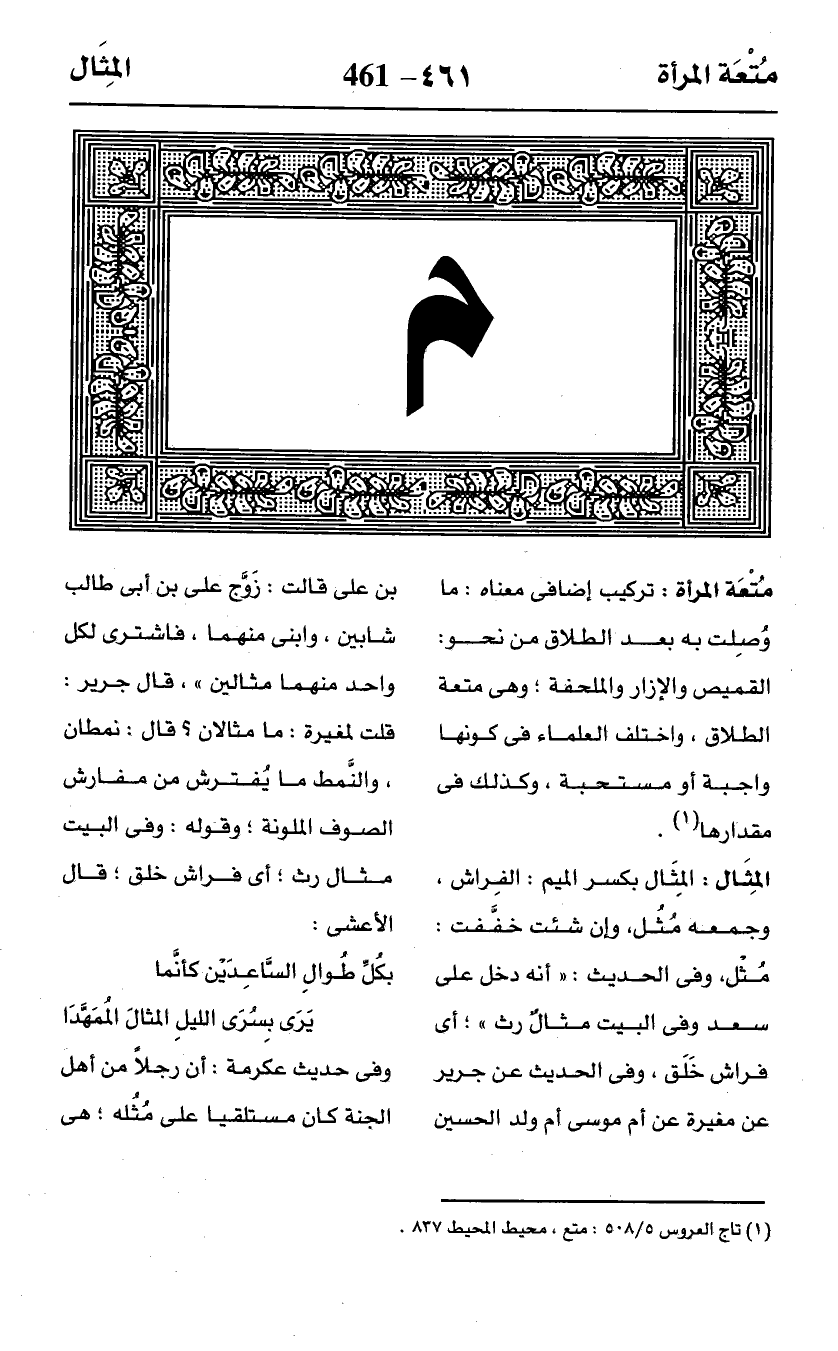 مُتْعَة المرأة
٤٦١ – 461
المِثَال
م
مُتْعَة المرأة : تركيب إضافى معناه : ما
وُصِلت به بعد الطلاق من نحو:
القميص والإزار والملحفة ؛ وهى متعة
الطلاق ، واختلف العلماء فى كونها
واجبة أو مستحبة ، وكذلك فى
مقدارها(١) .
المِثَال : المِثَال بكسر الميم : الفراش ،
وجمعه مُثُل، وإن شئت خفَّفت :
مُثْل، وفى الحديث : « أنه دخل على
سعد وفى البيت مثالٌ رث » ؛ أى
فراش خَلَق ، وفى الحديث عن جرير
عن مغيرة عن أم موسى أم ولد الحسين
بن على قالت : زَوَّج على بن أبى طالب
شابين ، وابنى منهما ، فاشترى لكل
واحد منهما مثالين » ، قال جرير :
قلت لمغيرة : ما مثالان ؟ قال : نمطان
، والنَّمط ما يُفترش من مفارش
الصوف الملونة ؛ وقوله : وفى البيت
مثال رث ؛ أى فراش خلق ؛ قال
الأعشى :
بكُلِّ طُوالِ السَّاعِدَيْن كأنَّما
يَرَى بِسُرَى الليلِ المثالَ المُمَهَّدَا
وفى حديث عكرمة : أن رجلاً من أهل
الجنة كان مستلقيا على مُثُله ؛ هى
(١) تاج العروس ٥٠٨/٥ : متع ، محيط المحيط ٨٣٧ .